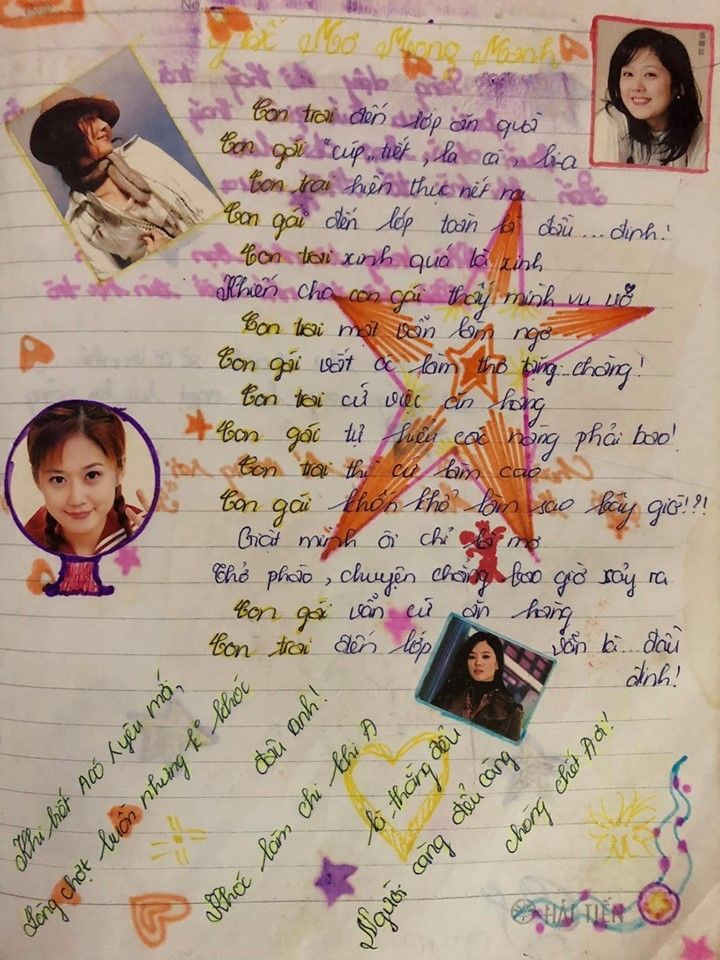 No.
Giấc Mơ Mong Manh
Con trai đến lớp ăn quà
Con gái "cúp" tiết, la cà, bi-a
Con trai hiền thục nết na
Con gái đến lớp toàn là đầu... đinh!
Con trai xinh quá là xinh
Khiến cho con gái thấy mình vu vơ
Con trai mặt vẫn làm ngơ
Con gái vắt óc làm thơ tặng chàng!
Con trai cứ việc ăn hàng
Con gái tự hiểu các nàng phải bao!
Con trai thì cứ làm cao
Con gái khốn khổ làm sao bây giờ!?!
Giật mình ôi chỉ là mơ
Thở phào, chuyện chẳng bao giờ xảy ra
Con gái vẫn cứ ăn hàng
Con trai đến lớp vẫn là... đầu
đinh!
Khi biết A có yêu mới,
Lòng chợt buồn nhưng k khóc
đâu anh!
Khóc làm chi khi A
là thằng đểu
Người càng đểu càng
chóng chết A ơi!
HẢI TIẾN